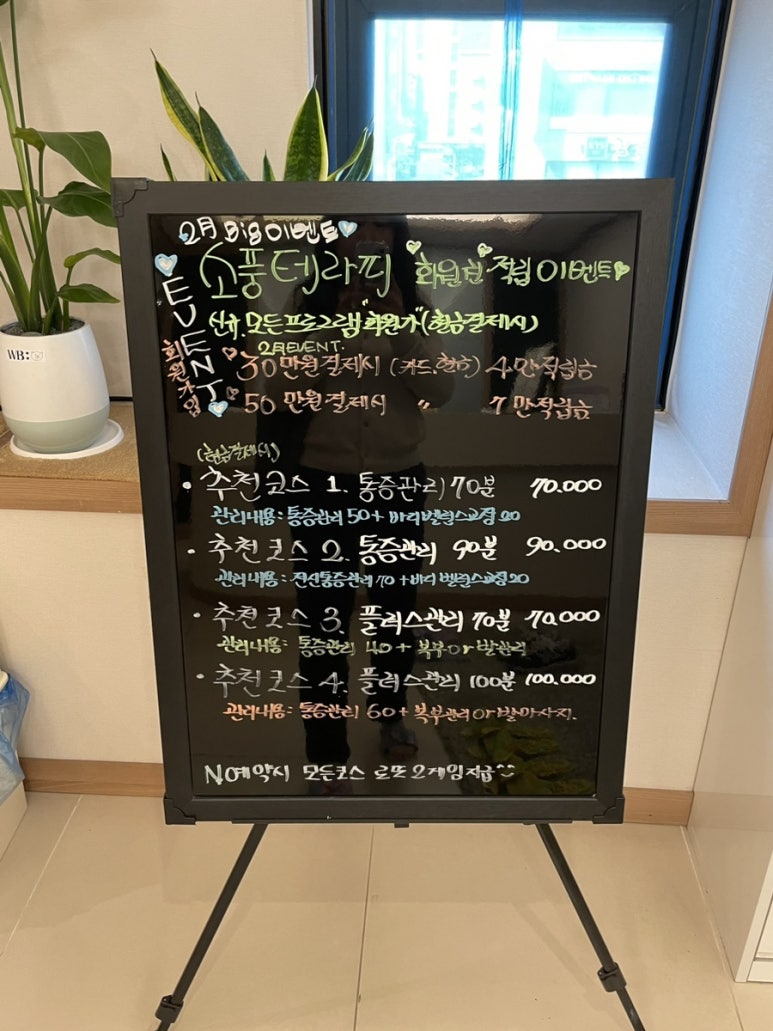 2月 Big 이벤트
소풍테라피 "회원권" 적립 이벤트
EVENT
신규. 모든프로그램 "회원가" (현금결제시)
2月EVENT.
회원가입
30만원결제시 (카드.현금) 4만적립금
50만원결제시 〃 7만적립금
(현금결제시)
• 추천코스 1. 통증관리 70분 70.000
관리내용: 통증관리 50 + 바디벨런스교정 20
• 추천코스 2. 통증관리 90분 90.000
관리내용: 전신통증관리 70 + 바디벨런스교정 20
• 추천코스 3. 플러스관리 70분 70.000
관리내용: 통증관리 40 + 복부 or 발관리
• 추천코스 4. 플러스관리 100분 100.000
관리내용: 통증관리 60 + 복부관리 or 발마사지.
N예약시 모든코스 로또 2게임지급
WB: